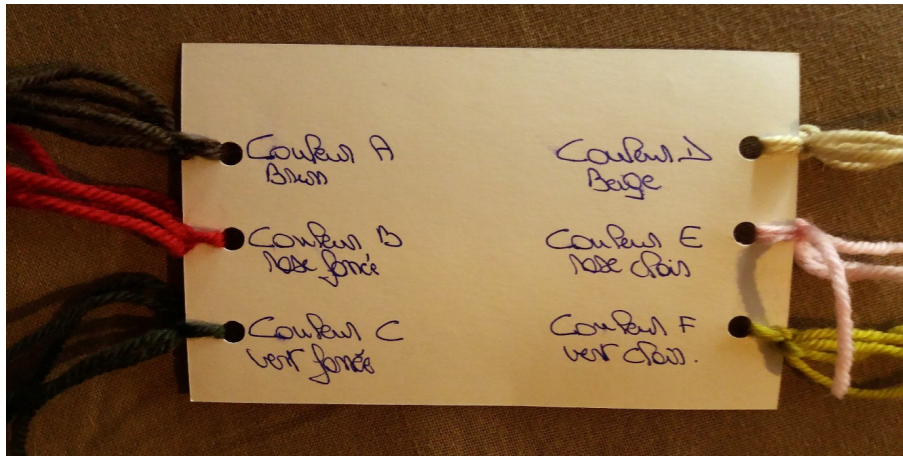 Couleur A
Brun
Couleur B
rose foncé
Couleur C
vert foncée
Couleur D
Beige
Couleur E
rose clair
Couleur F
vert clair.